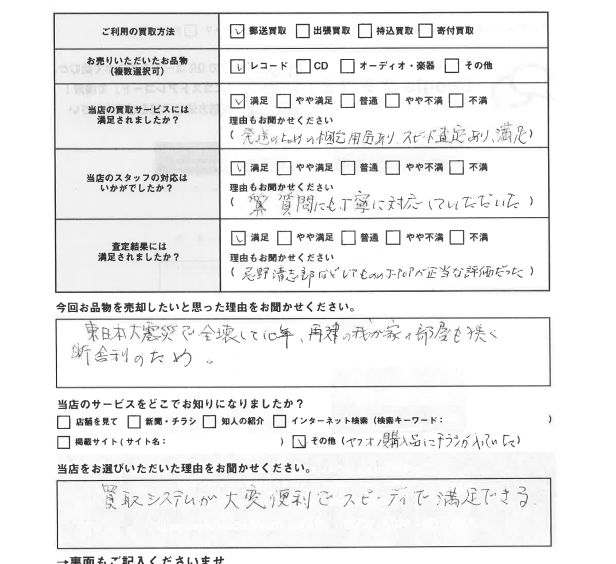 ご利用の買取方法 ☑ 郵送買取 □ 出張買取 □ 持込買取 □ 寄付買取
お売りいただいたお品物 (複数選択可) ☑ レコード □ CD □ オーディオ・楽器 □ その他
当店の買取サービスには 満足されましたか? ☑ 満足 □ やや満足 □ 普通 □ やや不満 □ 不満
理由もお聞かせください
(発送のための梱包用品あり、スピード査定あり、満足)
当店のスタッフの対応は いかがでしたか? ☑ 満足 □ やや満足 □ 普通 □ やや不満 □ 不満
理由もお聞かせください
(質問にも丁寧に対応していただいた)
査定結果には 満足されましたか? ☑ 満足 □ やや満足 □ 普通 □ やや不満 □ 不満
理由もお聞かせください
(忌野清志郎などJ-POPが正当な評価だった)
今回お品物を売却したいと思った理由をお聞かせください。
東日本大震災で全壊して10年、再建の我が家の部屋も狭く
断舎利のため。
当店のサービスをどこでお知りになりましたか?
□ 店舗を見て □ 新聞・チラシ □ 知人の紹介 □ インターネット検索(検索キーワード: )
□ 掲載サイト(サイト名: ) ☑ その他(ヤフオク購入品にチラシが入っていた)
当店をお選びいただいた理由をお聞かせください。
買取システムが大変便利でスピーディで満足できる。
→裏面もご記入くださいませ